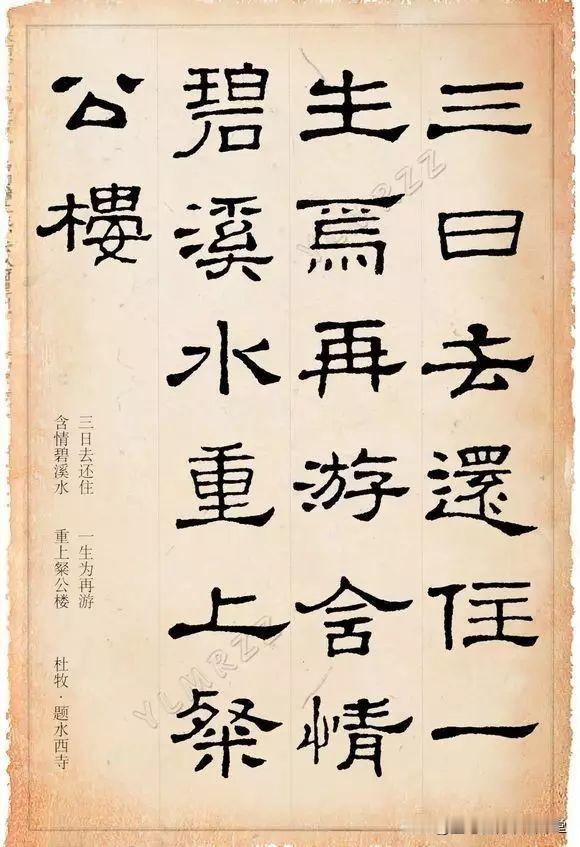 三日去還住一
生焉再游含情
碧溪水重上粲
公樓
三日去还住 一生为再游
含情碧溪水 重上粲公楼
杜牧·题水西寺
YLMRZZ
YLMRZZ